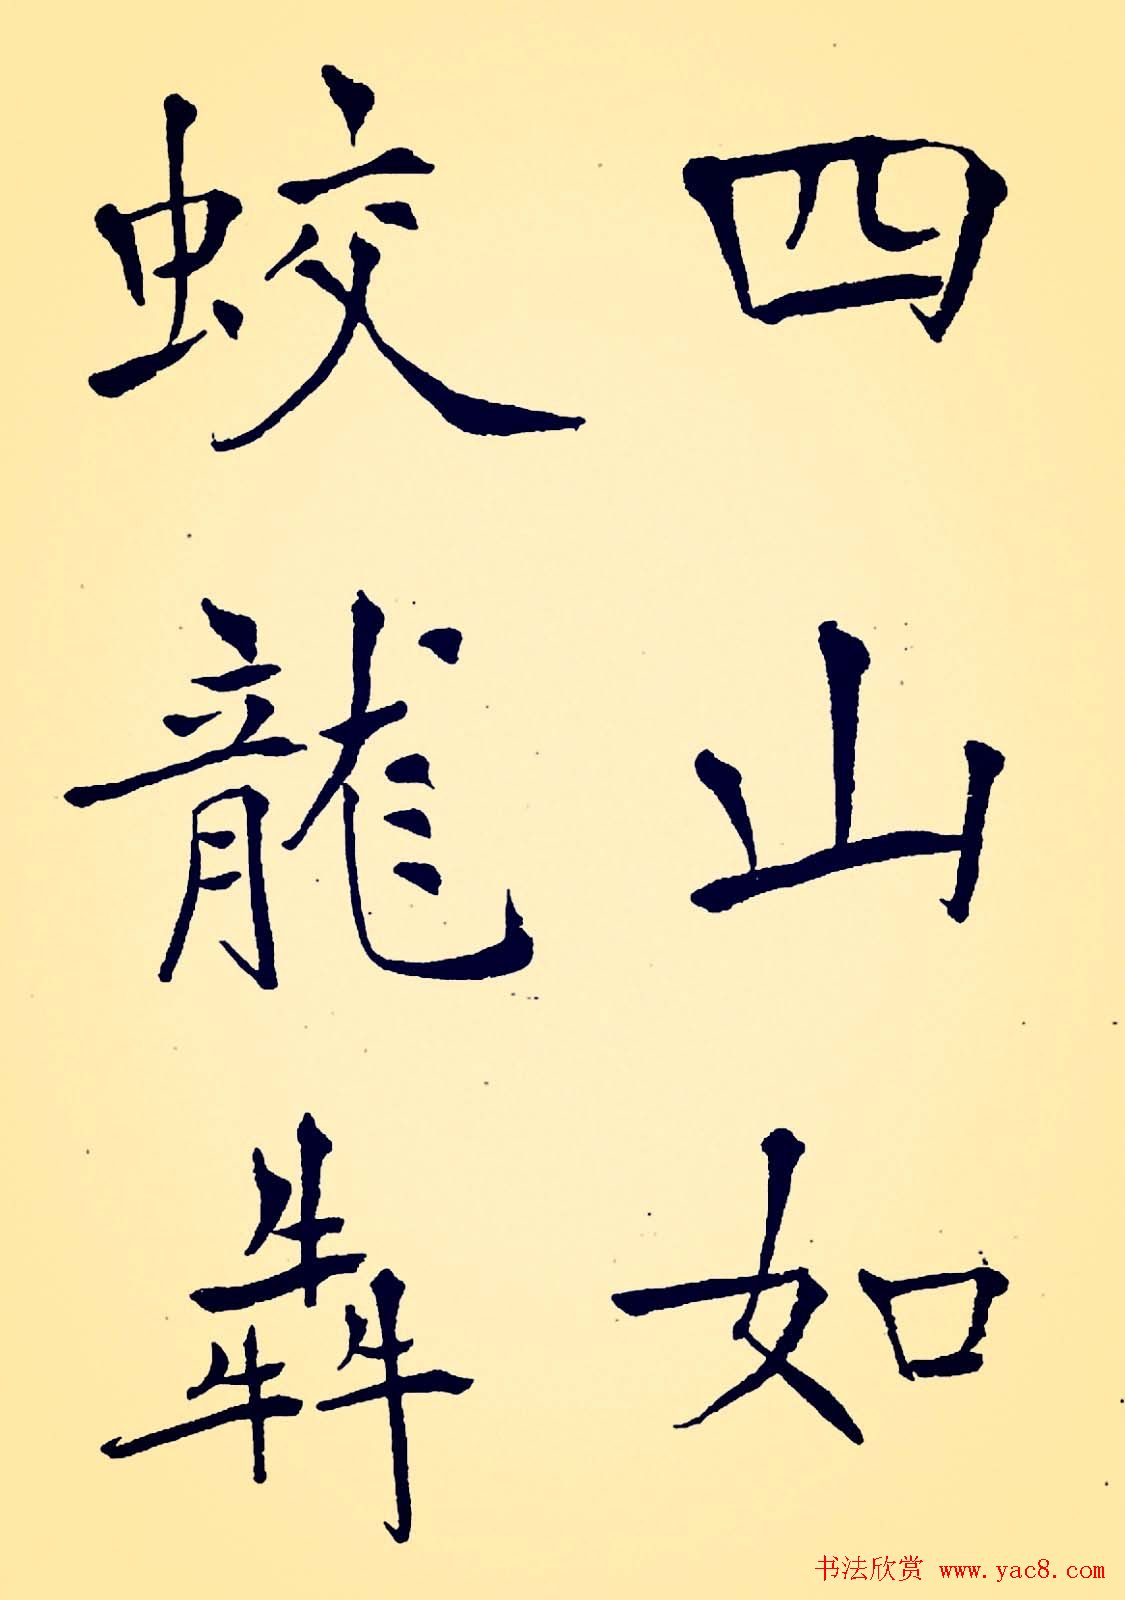 四山如
蛟龍犇
书法欣赏 www.yac8.com